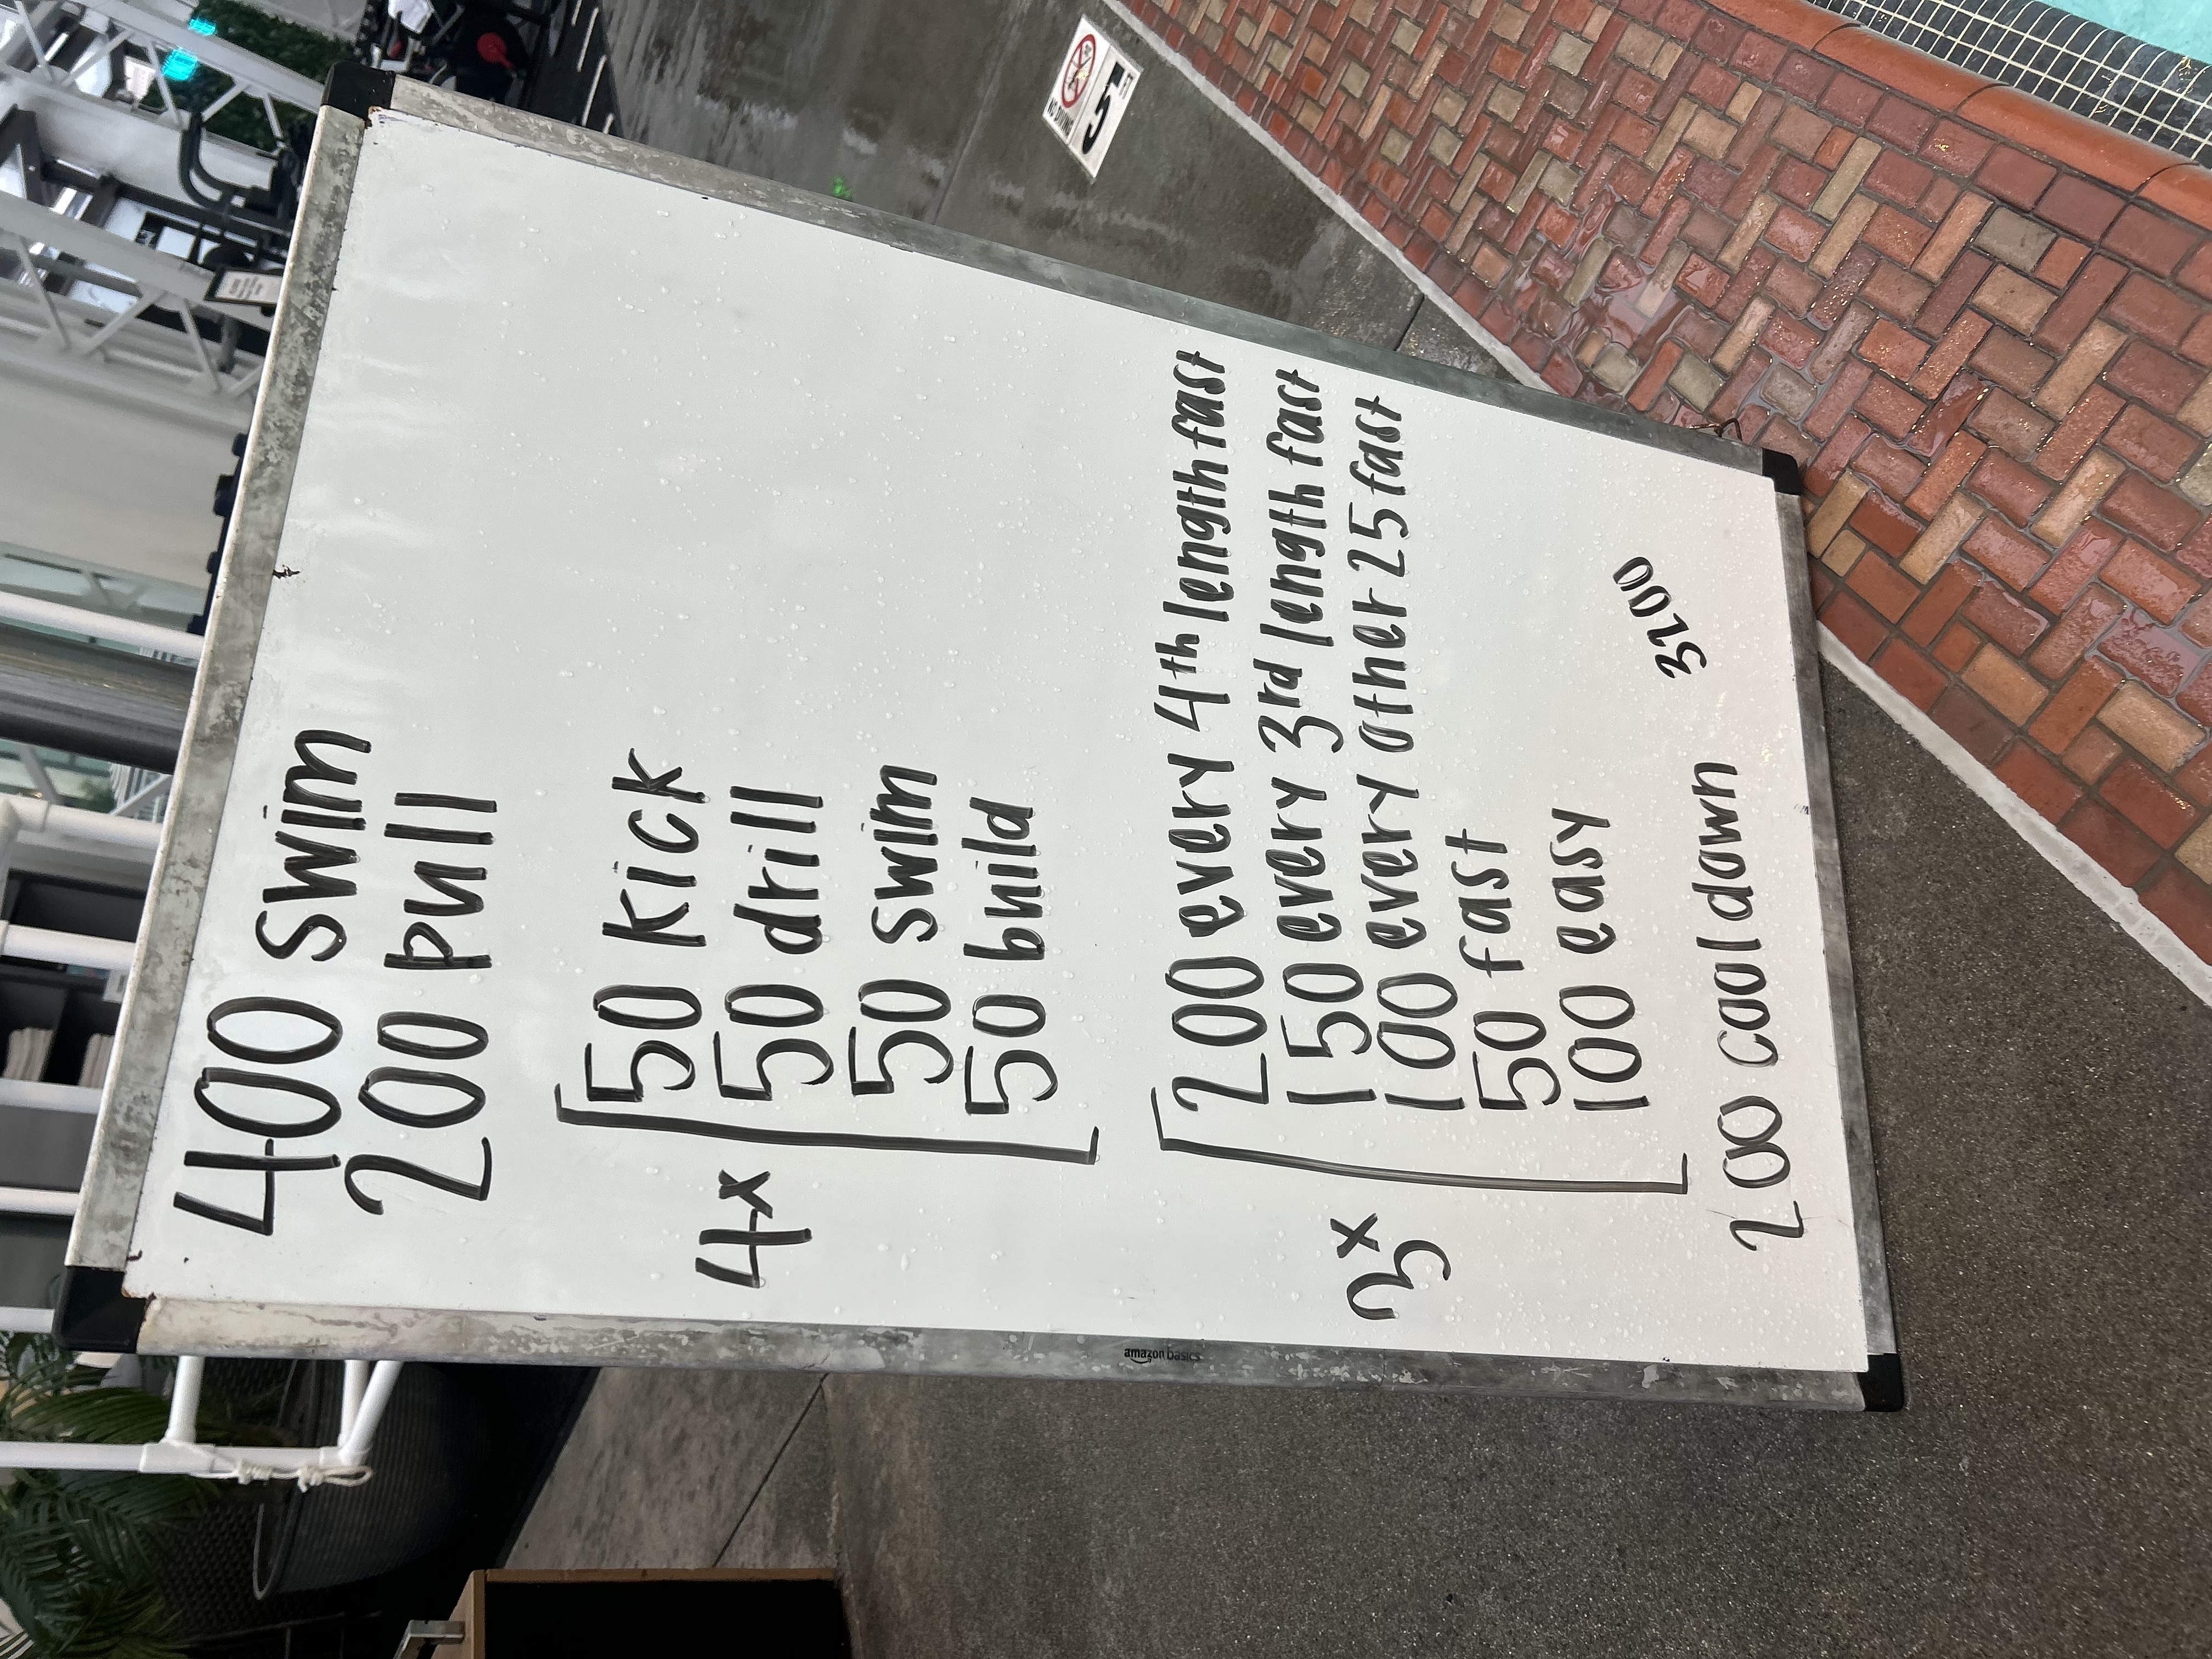 400 swim
200 pull
4x
50 Kick
50 drill
50 swim
50 build
3x
200 every 4th length fast
150 every 3rd length fast
100 every other 25 fast
50 fast
100 easy
200 cool down
3200
amazon basics
NO DIVING
5